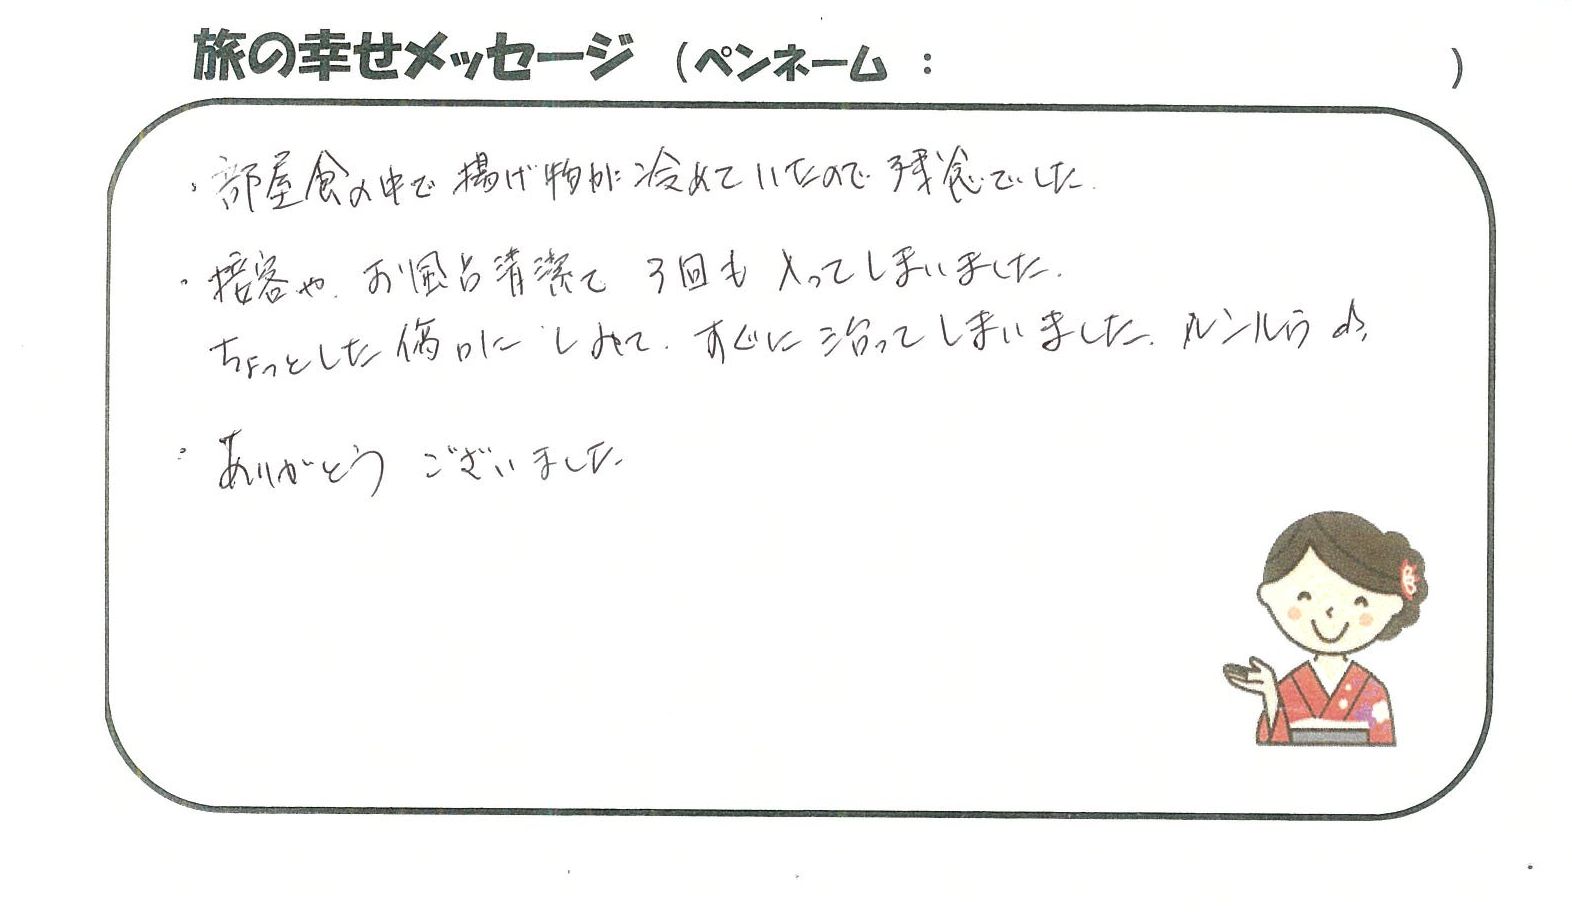 旅の幸せメッセージ (ペンネーム : )
・部屋食の中で揚げ物が冷めていたので残念でした.
・接客や、お風呂清潔で 3回も入ってしまいました.
ちょっとした傷口に しみて、すぐに治ってしまいました. ルンルン♪
・ありがとう ございました